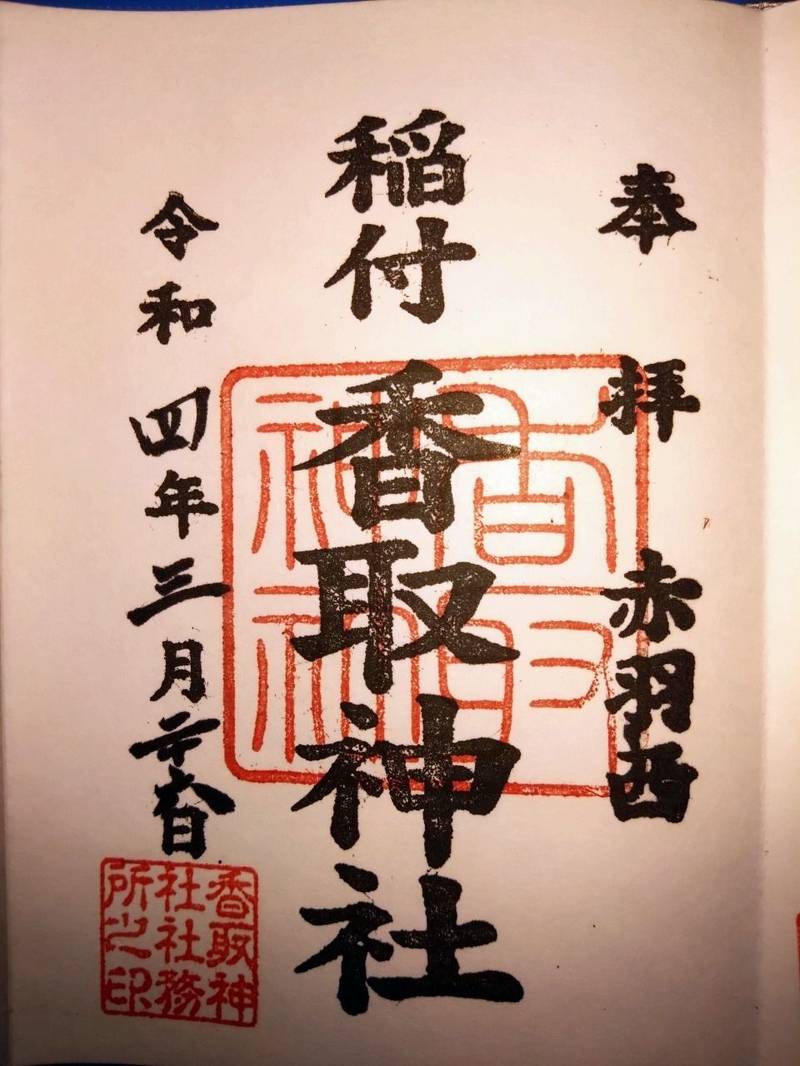 奉拝 赤羽西
稲付 香取神社
令和四年三月二十六日
香取
神社
香取神
社社務
所之印